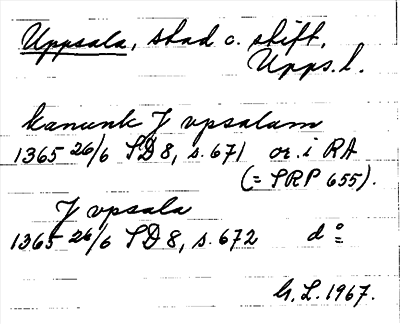 Uppsala, stad o. stift,
Upps. l.
kanunk J vpsalam
1365 26/6 SD 8, s. 671 or. i RA
(= SRP 655).
J vpsala
1365 26/6 SD 8, s. 672 do
G. L. 1967.